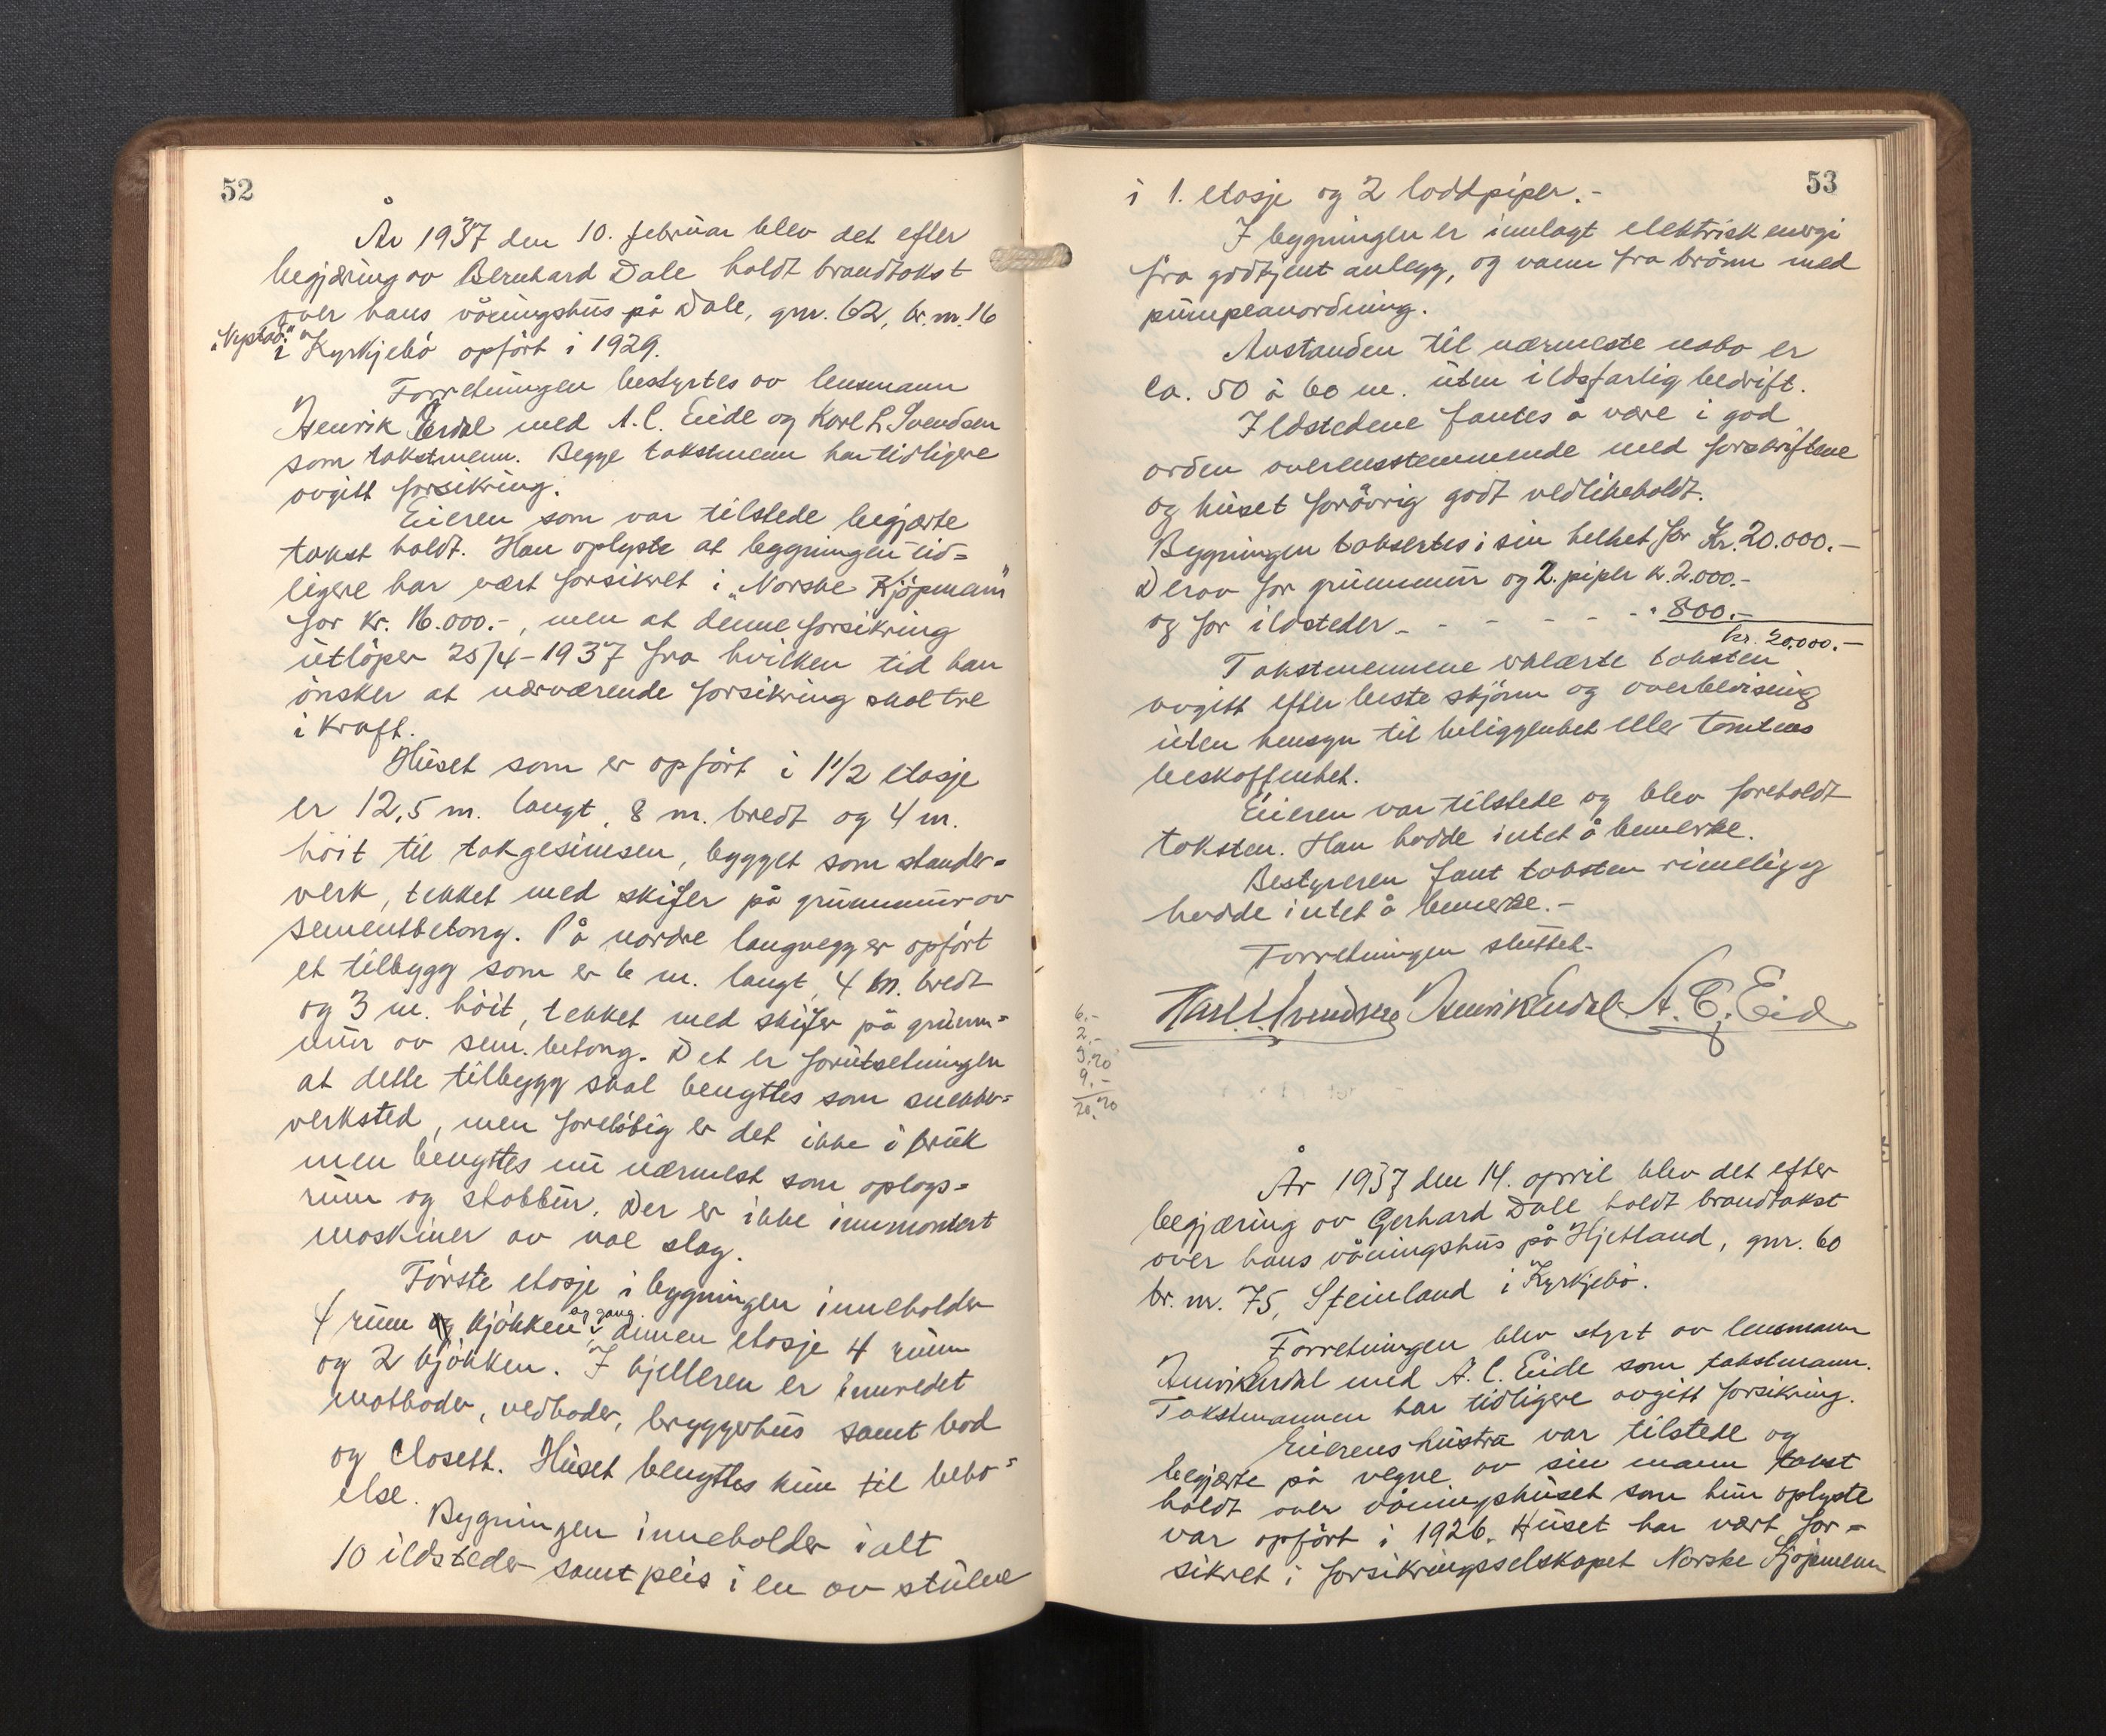 52
År 1937 den 10. februar blev det efter
begjæring av Bernhard Dale holdt brandtakst
over hans våningshus på Dale, gnr. 62, br. nr. 16
„Nystad"
i Kyrkjebö opfört i 1929.
Forretningen bestyrtes av lensmann
Henrik Erdal med A. C. Eide og Karl L. Svendsen
som takstmenn. Begge takstmenn har tidligere
avgitt forsikring.
Eieren som var tilstede begjærte
takst holdt. Han oplyste at bygningen tid=
ligere har vært forsikret i „Norske Kjöpmann"
for kr. 16.000.-, men at denne forsikring
utlöper 25/4-1937 fra hvilken tid han
önsker at nærværende forsikring skal tre
i kraft.
Huset som er opfört i 1 1/2 etasje
er 12,5 m. langt, 8 m. bredt og 4 m.
höit til takgesimsen, bygget som stender=
verk, tekket med skifer på grunnmur av
sementbetong. På nordre langvegg er opfört
et tilbygg som er 6 m. langt, 4 m. bredt
og 3 m. höit, tekket med skifer på grunn=
mur av sem. betong. Det er forutsetningen
at dette tilbygg skal benyttes som snekker=
verksted, men forelöbig er det ikke i bruk
men benyttes nu nærmest som oplags=
rum og stabbur. Der er ikke innmontert
maskiner av noe slag.
Förste etasje i bygningen inneholder
4 rum og kjökken og gang, annen etasje 4 rum
og 2 kjökken. I kjelleren er innredet
matboder, vedboder, bryggerhus samt bod
og Closett. Huset benyttes kun til bebo=
else.
Bygningen inneholder ialt
10 ildsteder samt peis i en av stuene
53
i 1. etasje og 2 loddpiper.-
I bygningen er innlagt elektrisk energi
fra godkjent anlegg, og vann fra brönn med
pumpeanordning.
Avstanden til nærmeste nabo er
ca. 50 à 60 m. uten ildsfarlig bedrift.
Ildstedene fantes å være i god
orden overensstemmende med forskriftene
og huset forövrig godt vedlikeholdt.
Bygningen taksertes i sin helhet for Kr. 20.000.-
Derav for grunnmur og 2 piper kr. 2.000.-
og for ildsteder - - - - - - " 800.-
kr. 20.000.-
Takstmennene erklærte taksten
avgitt efter beste skjönn og overbevisning
uten hensyn til beliggenhet eller tomtens
beskaffenhet.
Eieren var tilstede og blev foreholdt
taksten. Han hadde intet å bemerke.
Bestyreren fant taksten rimelig og
hadde intet å bemerke.-
Forretningen sluttet.
Karl L. Svendsen Henrik Erdal A. C. Eide
6.-
2.-
3.20
9.-
20.20
År 1937 den 14. april blev det efter
begjæring av Gerhard Dale holdt brandtakst
over hans våningshus på Hjetland, gnr. 60
br. nr. 75, Steinland i Kyrkjebö.
Forretningen blev styrt av lensmann
Henrik Erdal med A. C. Eide som takstmann.
Takstmannen har tidligere avgitt forsikring.
Eierens hustru var tilstede og
begjærte på vegne av sin mann takst
holdt over våningshuset som hun oplyste
var opfört i 1926. Huset har vært for=
sikret i forsikringsselskapet Norske Kjöpmenn